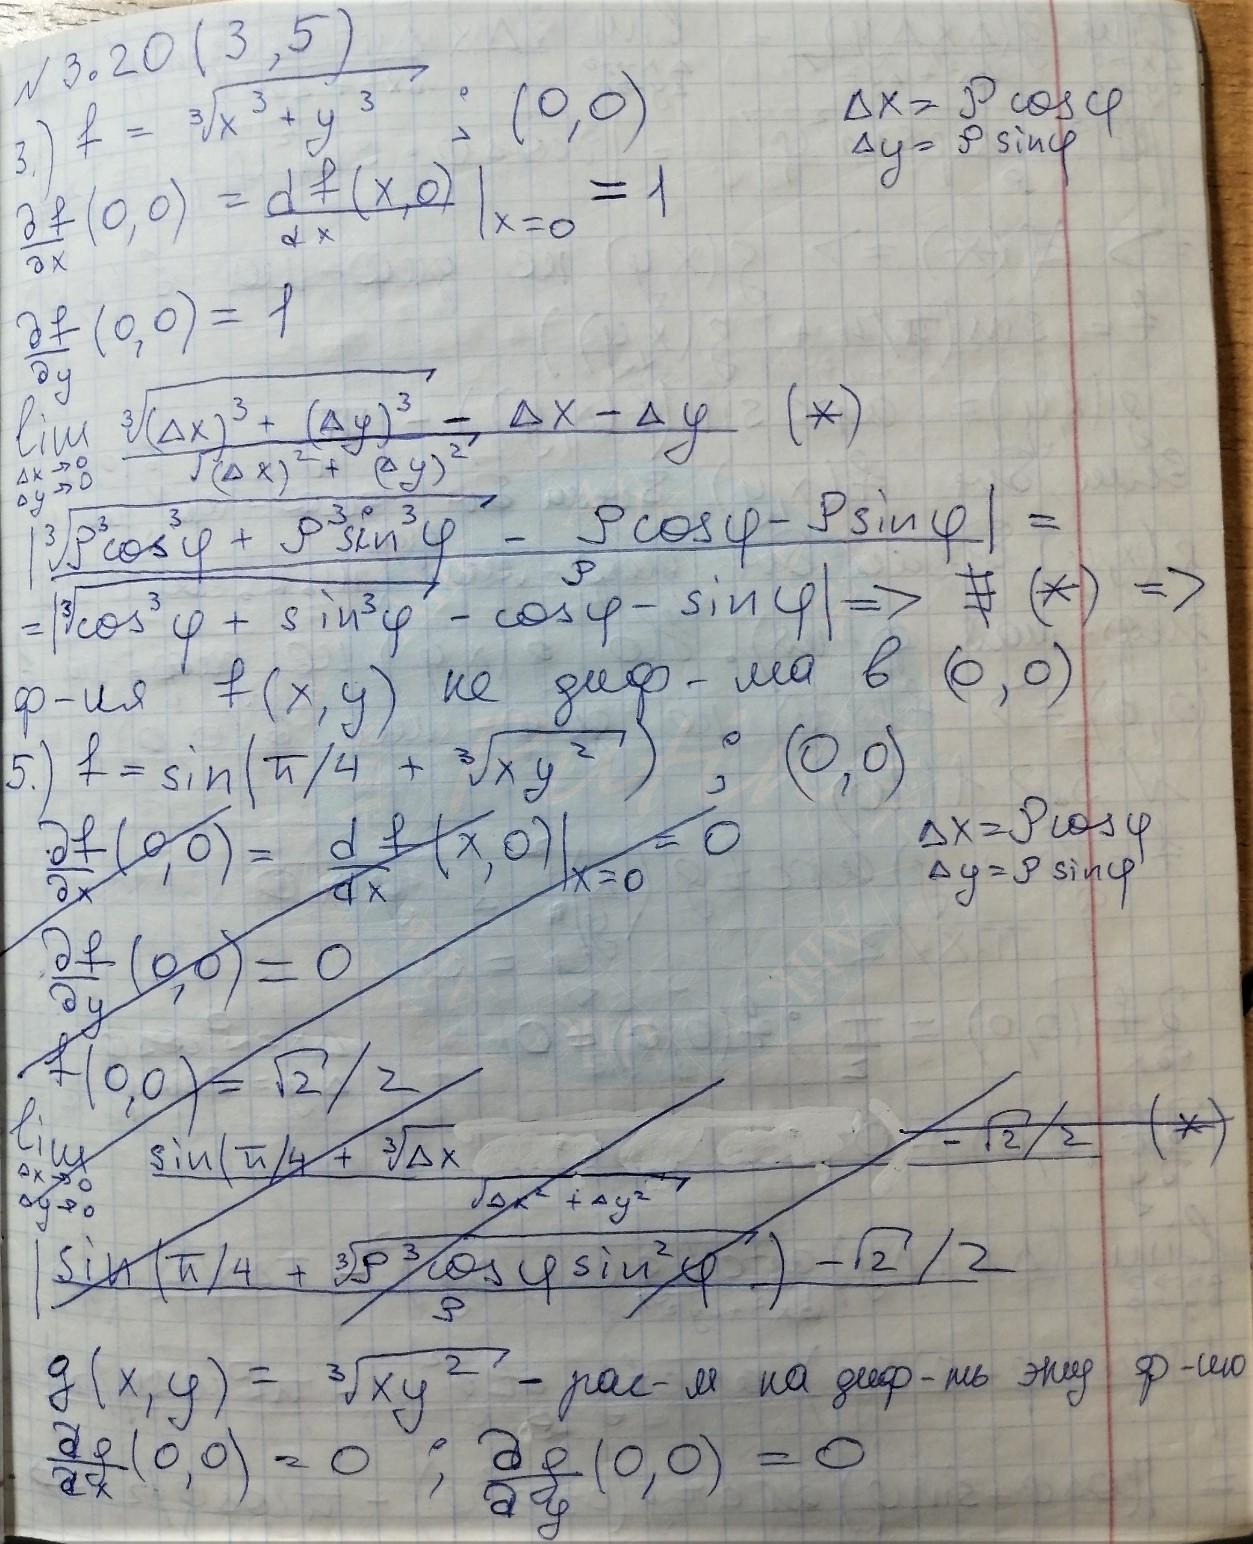 №3.20(3,5)
3.) f = ∛(x³ + y³) ; (0,0)
Δx = ρcosφ
Δy = ρsinφ
∂f/∂x (0,0) = d f(x,0)/dx |x=0 = 1
∂f/∂y (0,0) = 1
lim Δx→0 Δy→0 (∛((Δx)³ + (Δy)³) - Δx - Δy)/√((Δx)² + (Δy)²) (*)
|(∛(ρ³cos³φ + ρ³sin³φ) - ρcosφ - ρsinφ)/ρ| =
= |∛(cos³φ + sin³φ) - cosφ - sinφ| => ∄ (*) =>
ф-ия f(x,y) не диф-ма в (0,0)
5.) f = sin(π/4 + ∛(xy²)) ; (0,0)
Δx = ρcosφ
Δy = ρsinφ
∂f/∂x (0,0) = d f(x,0)/dx |x=0 = 0
∂f/∂y (0,0) = 0
f(0,0) = √2/2
lim Δx→0 Δy→0 (sin(π/4 + ∛Δx - √2/2)/√(Δx² + Δy²) (*)
|(sin(π/4 + ∛(ρ³cosφsin²φ)) - √2/2)/ρ
g(x,y) = ∛(xy²) - рас-м на диф-ть эту ф-ию
∂g/∂x (0,0) = 0 ; ∂g/∂y (0,0) = 0